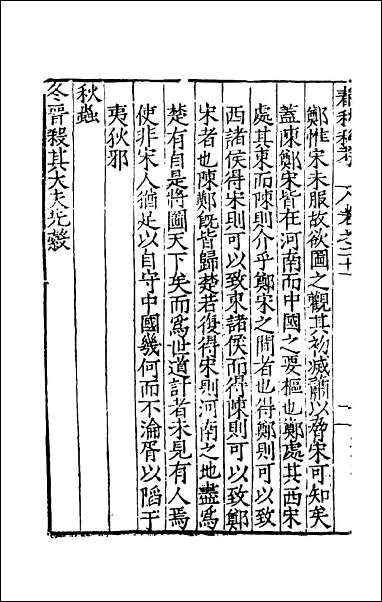 春秋私考 卷之二十
鄭惟宋未服故欲圖之觀其初滅蕭以脅宋可知矣
蓋陳鄭宋皆在河南而中國之要樞也鄭處其西宋
處其東而陳則介乎鄭宋之間者也得鄭則可以致
西諸侯得宋則可以致東諸侯而得陳則可以致鄭
宋者也陳鄭既皆歸楚若復得宋則河南之地盡為
楚有自是將圖天下矣而為世道計者未見有人焉
使非宋人猶足以自守中國幾何而不淪胥以陷于
夷狄邪
秋螽
冬晉殺其大夫先縠